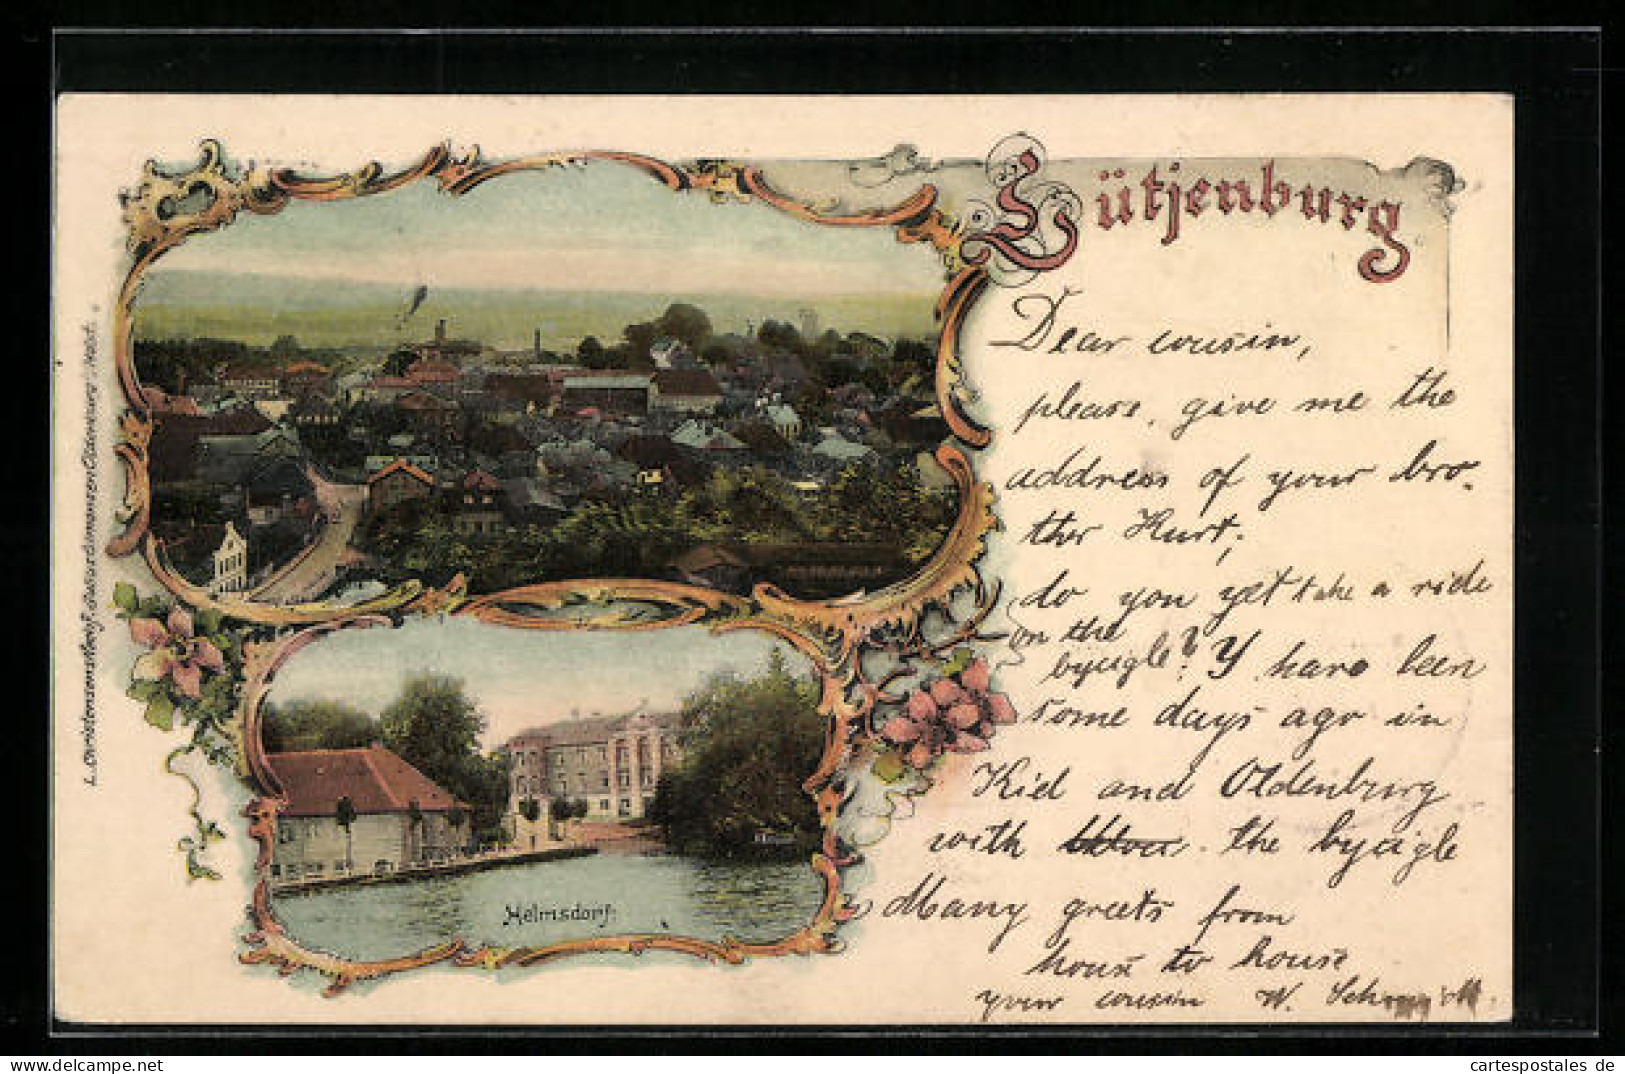 Lütjenburg
Dear cousin,
please, give me the
address of your bro-
ther Kurt;
do you yet take a ride
on the
byzigle? Y have been
some days ago in
Kiel and Oldenburg
with the byzigle
Many greets from
house to house
your cousin W.
Helmsdorf.
cartespostales de